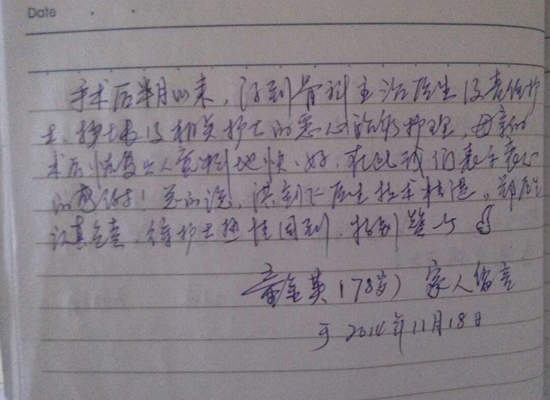 Date
手术后半月以来，得到骨科主治医生及责任护
士、护士长及相关护士的悉心治疗护理，母亲的
术后恢复出人意料地快、好，在此我们表示衷心
的感谢！总的说，洪 医生技术精湛，郑医生
认真负责，待护士热性周到，
黄金英（78岁） 家人留言
于2014年11月18日